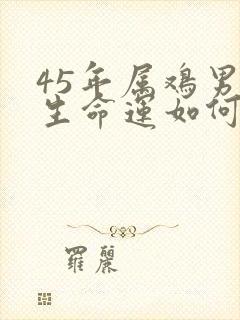 45年属鸡男
生命运如何
羅麗